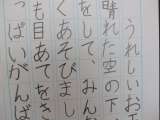 うれしいお
晴れた空の下、
をして、みんな
くあそびまし
も目あてをき
っぱいがんば